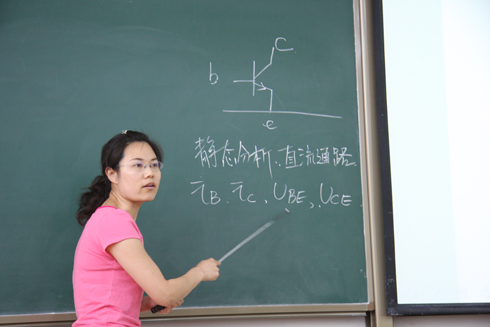 c
b
e
静态分析、直流通路
iB、iC、UBE、UCE